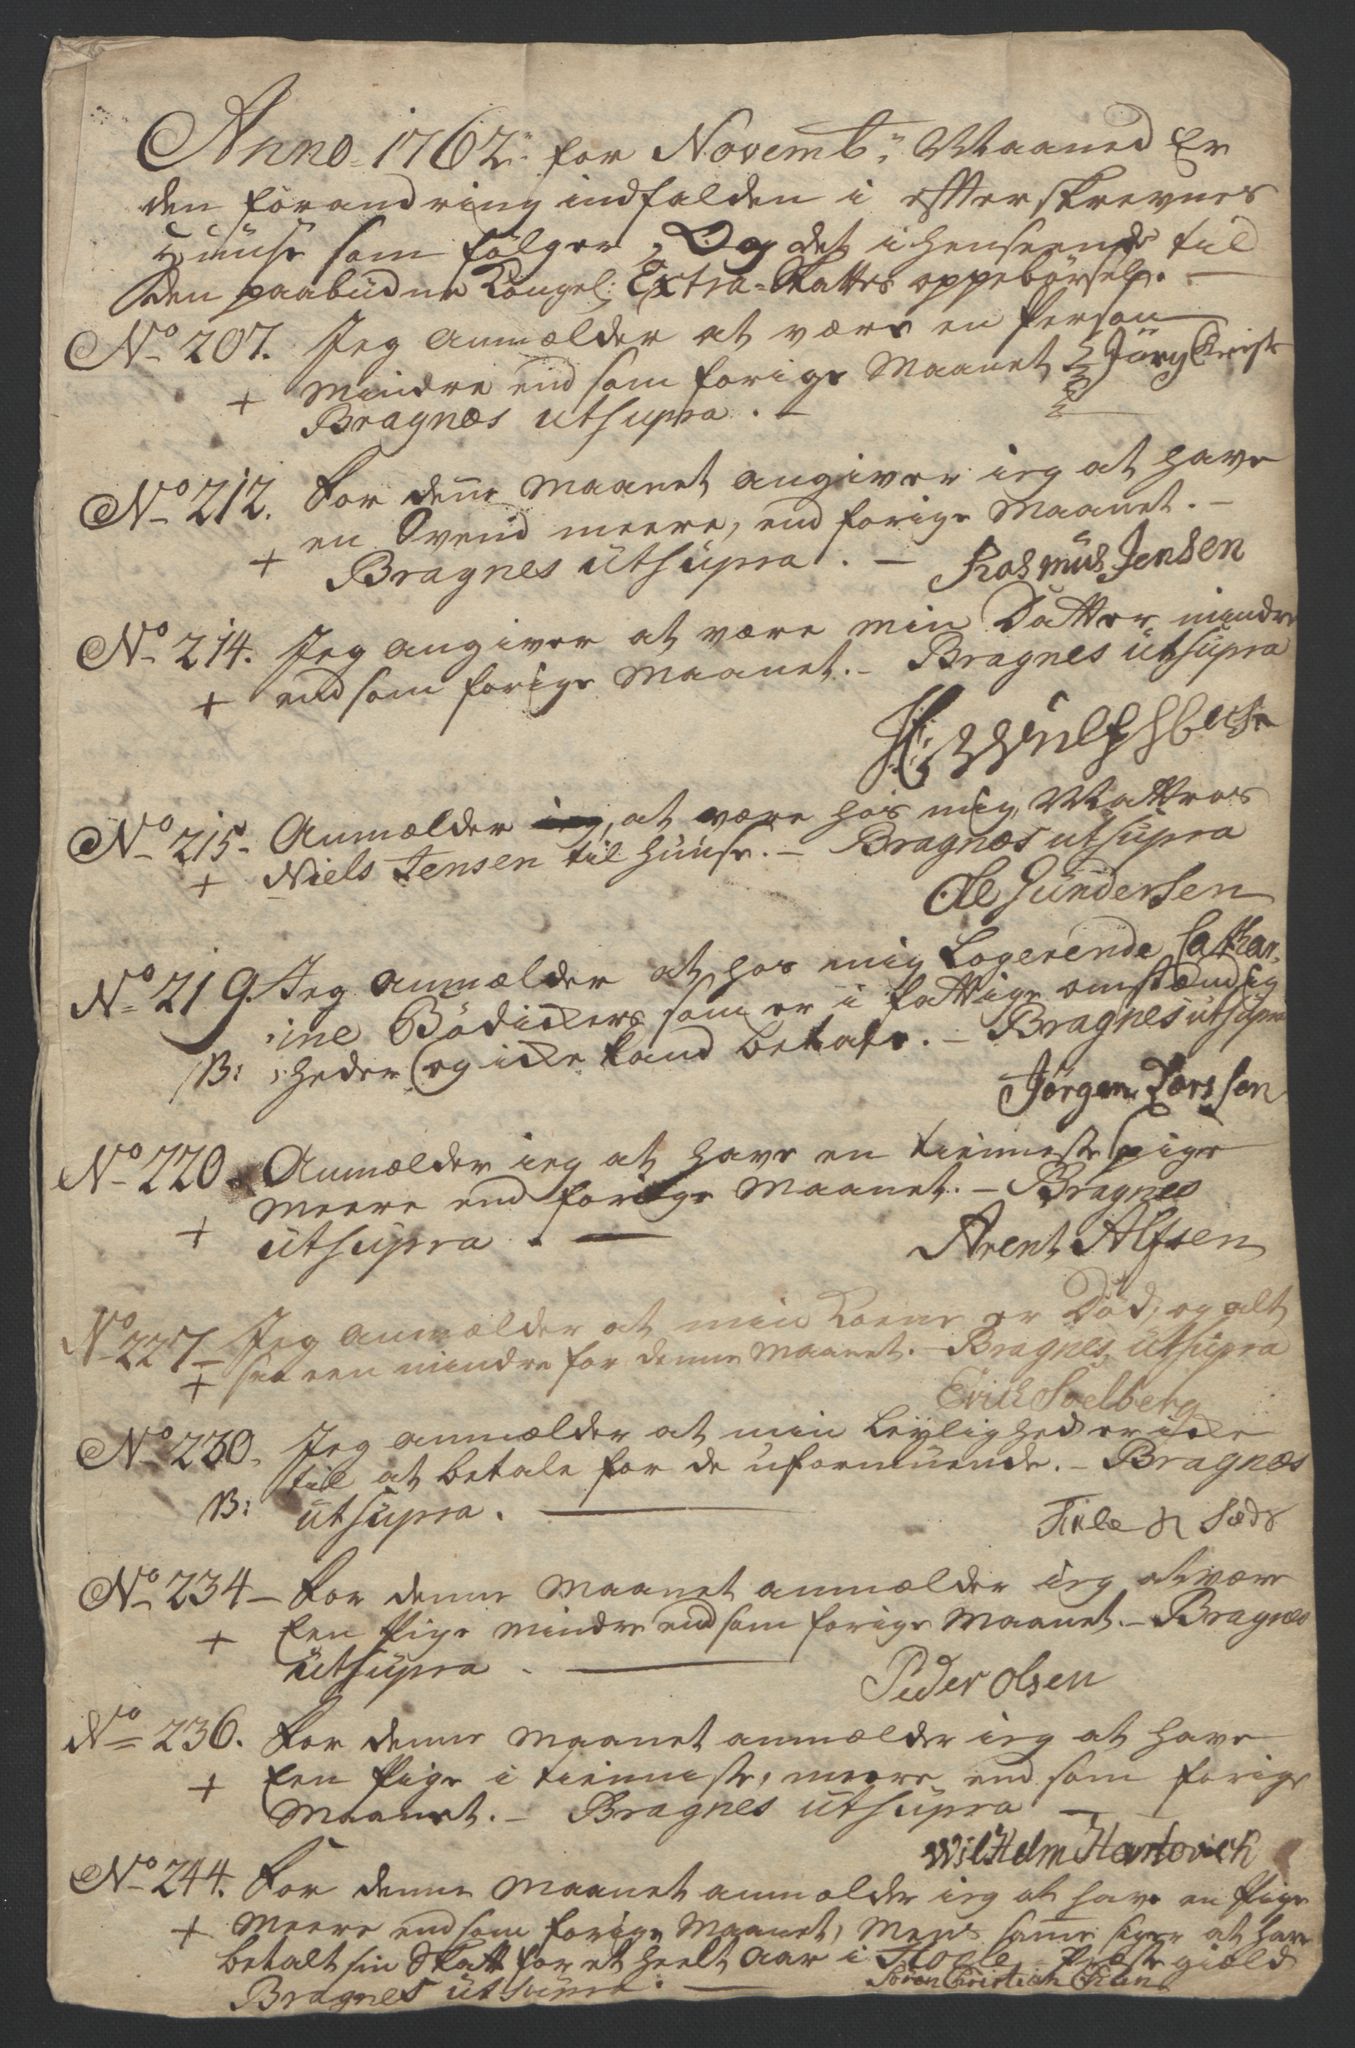 Anno 1762 for Novemb: Maaned Er
den forandring indfalden i efterskrevnes
Huuse som følger, Og det i henseende til
den paabudne Kongel: Extra-Skattes oppebørsel. —
No 207. Jeg anmælder at være en Person
+ mindre end som forige Maanet
Bragnæs utsupra. —
No 212. For denne Maanet angiver ieg at have
en Svend meere, end forige Maanet. —
+ Bragnes utsupra. — Rasmus Jensen
No 214. Jeg angiver at være min Datter mindre
+ end som forige Maanet. — Bragnes utsupra
No 215. Anmælder ieg, at være hos mig, Mattros
+ Niels Jensen til huuse. — Bragnæs utsupra
Ole Gundersen
No 219. Jeg anmælder at hos mig Logerende Cathar-
ine Bödickers som er i fattige omstændig
NB: heder og icke kand betale. — Bragnes utsupra
Jörgen Larssen
No 220. Anmælder ieg at have en tienneste pige
meere end forige Maanet. — Bragnes
+ utsupra. — Arent Alfsen
No 227 — Jeg anmælder at min Kone er Död, og alt
+ saa een mindre for denne Maanet. — Bragnes utsupra
Erich Soelberg
No 230. Jeg anmælder at min Leylighed er icke
til at betale for de uformuende. — Bragnæs
NB: utsupra. —
No 234 — For denne Maanet anmælder ieg at være
+ Een Pige mindre end som forige Maanet. — Bragnes
utsupra. — Peder Olsen
No 236. For denne Maanet anmælder ieg at have
+ Een Pige i tienniste, meere end som forige
Maanet. — Bragnes utsupra —
Wilhelm Hartovich
No 244. For denne Maanet anmælder ieg at have en Pige
+ Meere end som forige Maanet, Mens samme siger at have
betalt sin Skatt for et heelt Aar i Præstegield
Bragnes utsupra. — Søren Christian